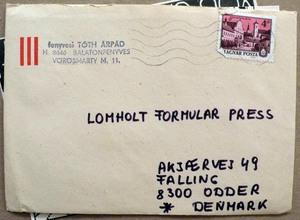 fenyvesi TÓTH ÁRPÁD
H. 8646 BALATONFENYVES
VÖRÖSMARTY M. 11.
4 Ft
MAGYAR POSTA
LOMHOLT FORMULAR PRESS
AKJÆRVEJ 49
FALLING
8300 ODDER
* DENMARK